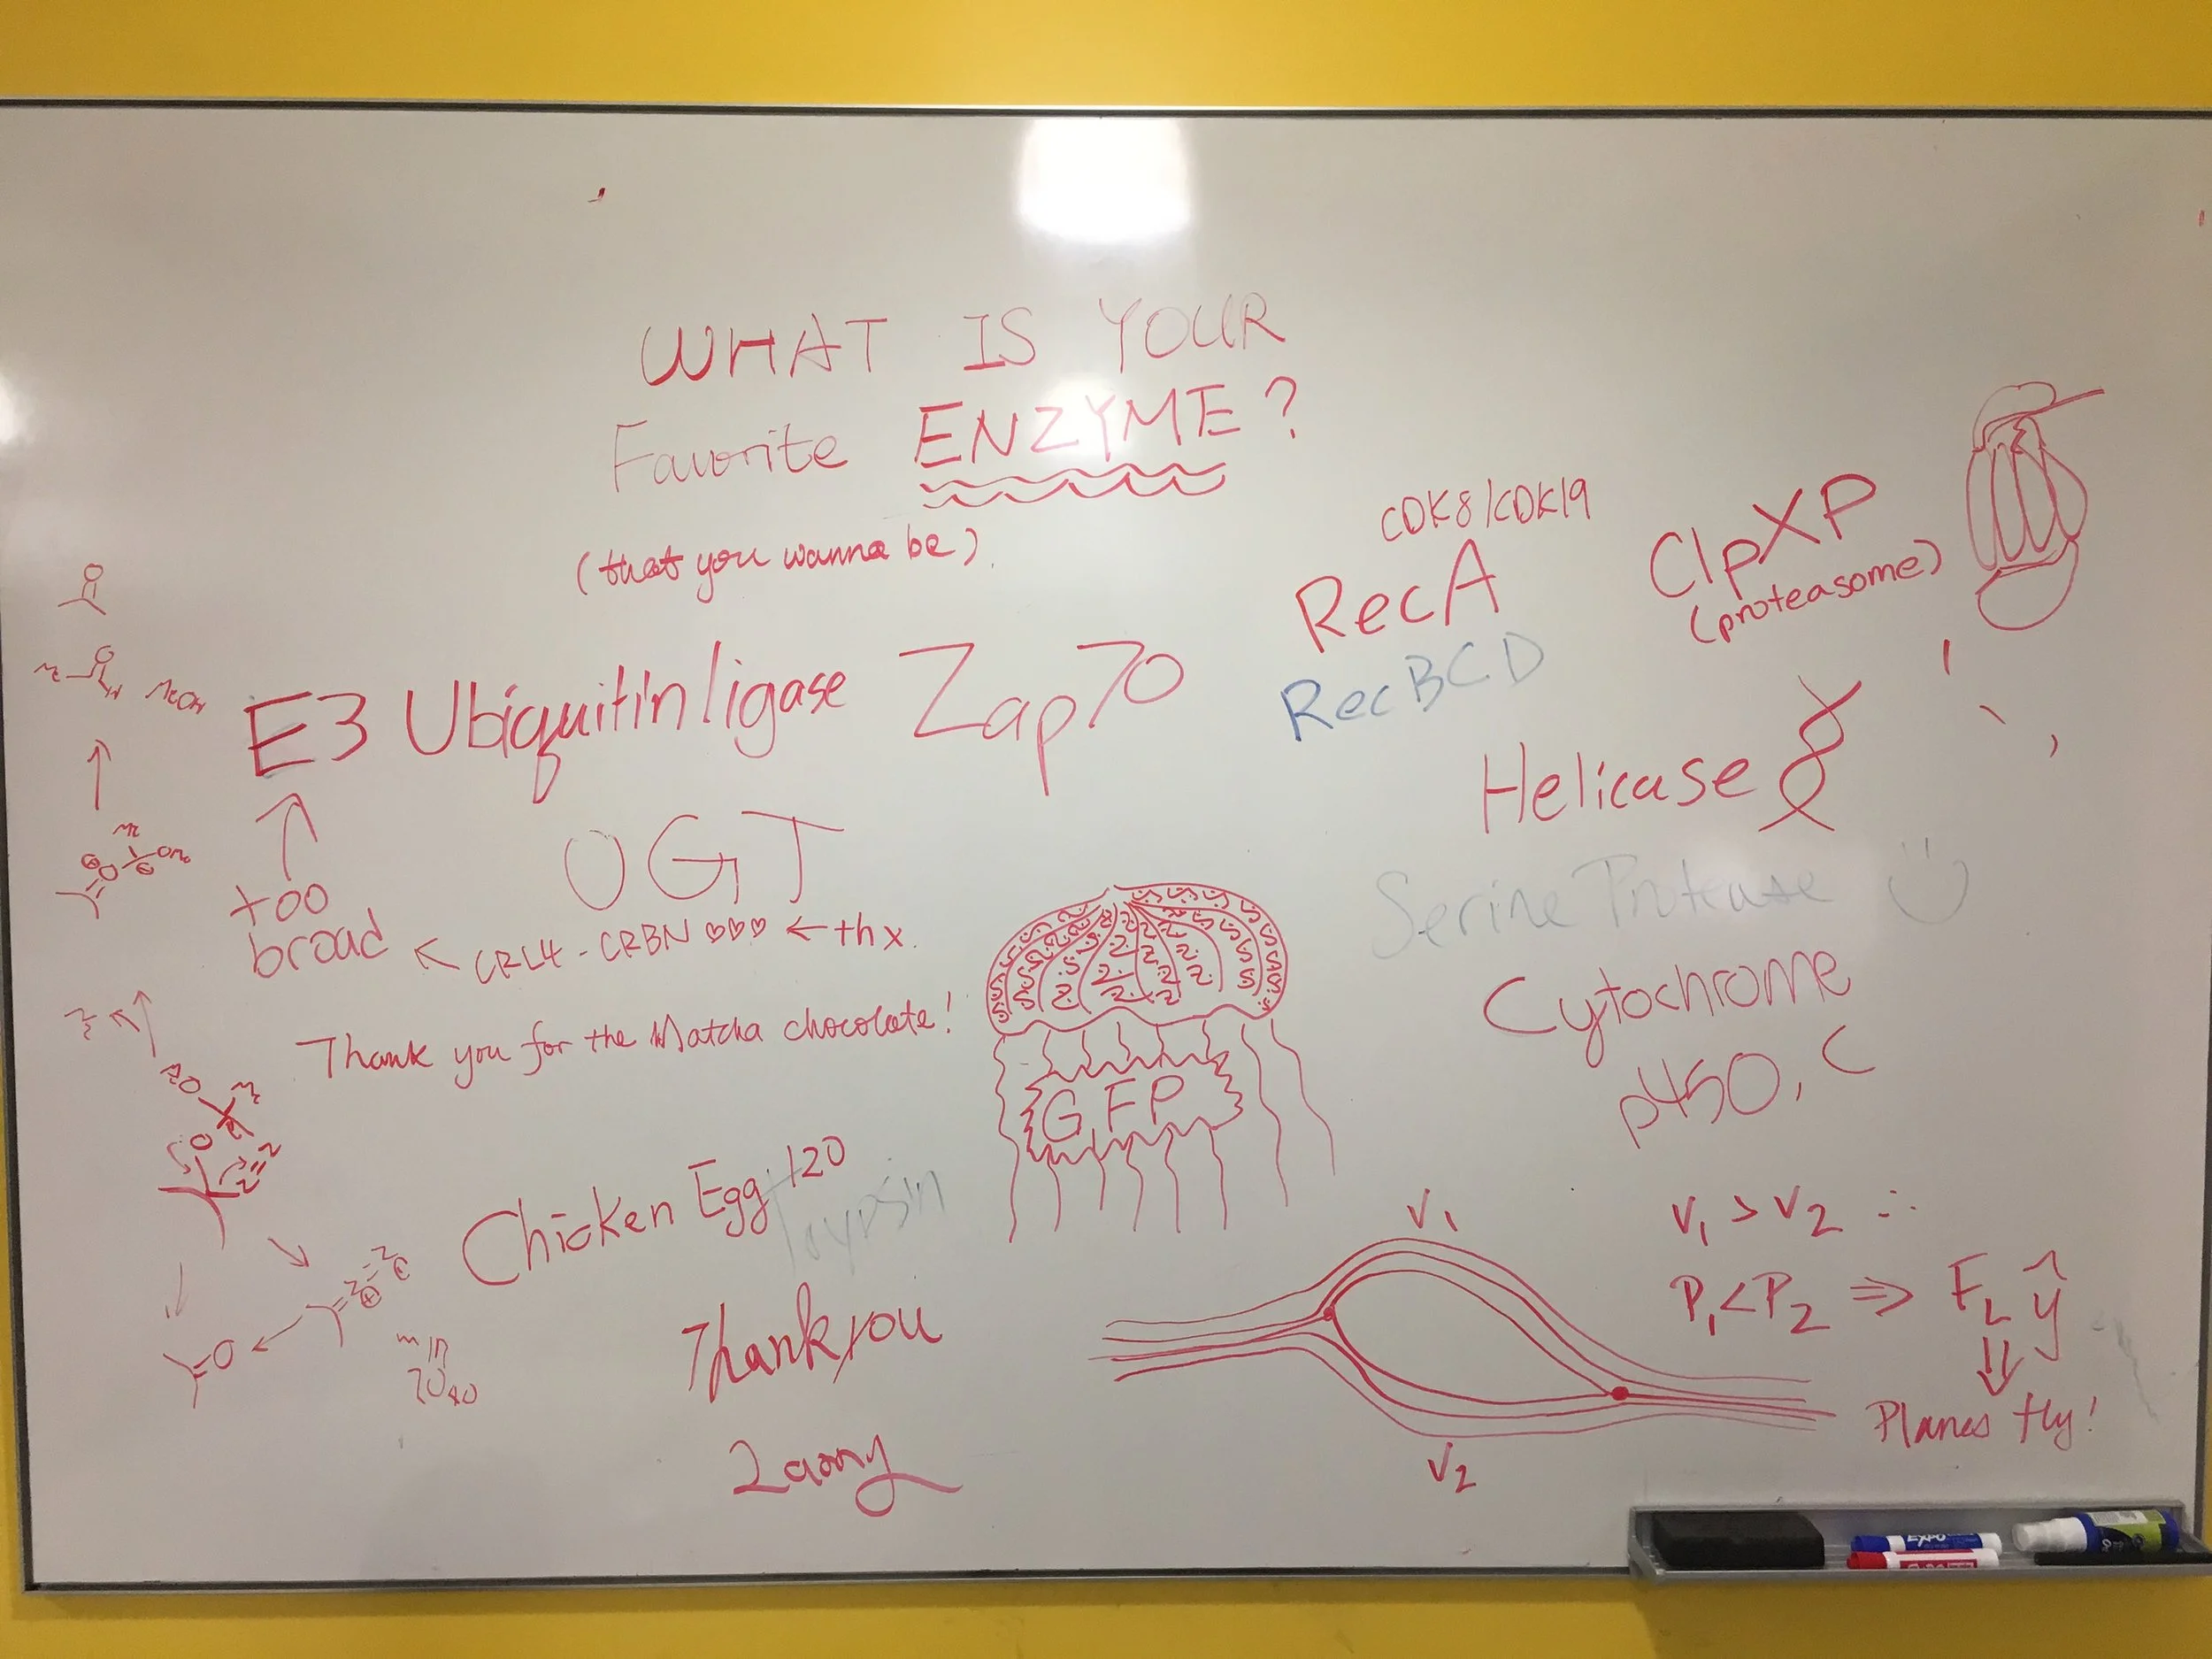 WHAT IS YOUR
Favorite ENZYME?
(that you wanna be)
CDK8/CDK19
RecA
RecBCD
ClpXP
(proteasome)
E3 Ubiquitin ligase
Zap70
Helicase
OGT
too
broad
CRL4-CRBN ♡♡♡ ← thx.
Serine Protease
Cytochrome
p450, C
Thank you for the Matcha chocolate!
GFP
Chicken Egg
120
Thank you
V₁
V₂
V₁ > V₂ ∴
P₁ < P₂ ⇒ F_L ŷ
⇓
Planes fly!
MeOH
EXPO